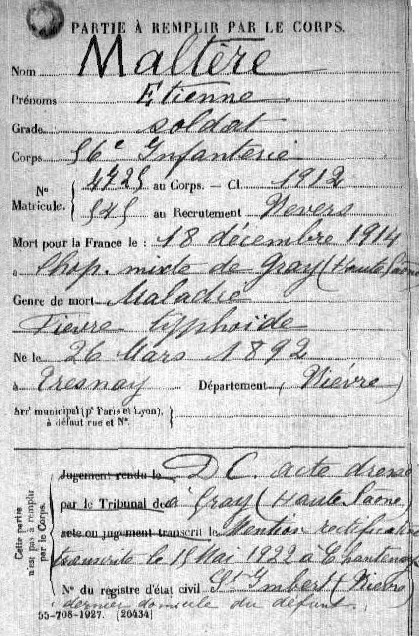 PARTIE À REMPLIR PAR LE CORPS.
Nom Maltère
Prénoms Etienne
Grade soldat
Corps 56e Infanterie
N° Matricule. 4725 au Corps. — Cl. 1912
545 au Recrutement Nevers
Mort pour la France le : 18 décembre 1914
à hop. mixte de Gray (Haute Saône
Genre de mort Maladie
Fievre typhoïde
Né le 26 Mars 1892
à Tresnay Département (Nièvre)
Arrt municipal (pr Paris et Lyon),
à défaut rue et N°.
Cette partie n'est pas à remplir par le Corps.
Jugement rendu le D.C. acte dressé
par le Tribunal de à Gray (Haute Saône)
acte ou jugement transcrit le Mention rectificative
transcrite le 15 Mai 1922 à Chantenay
N° du registre d'état civil St Imbert (Nièvre)
dernier domicile du défunt.
55-708-1927. [26434]